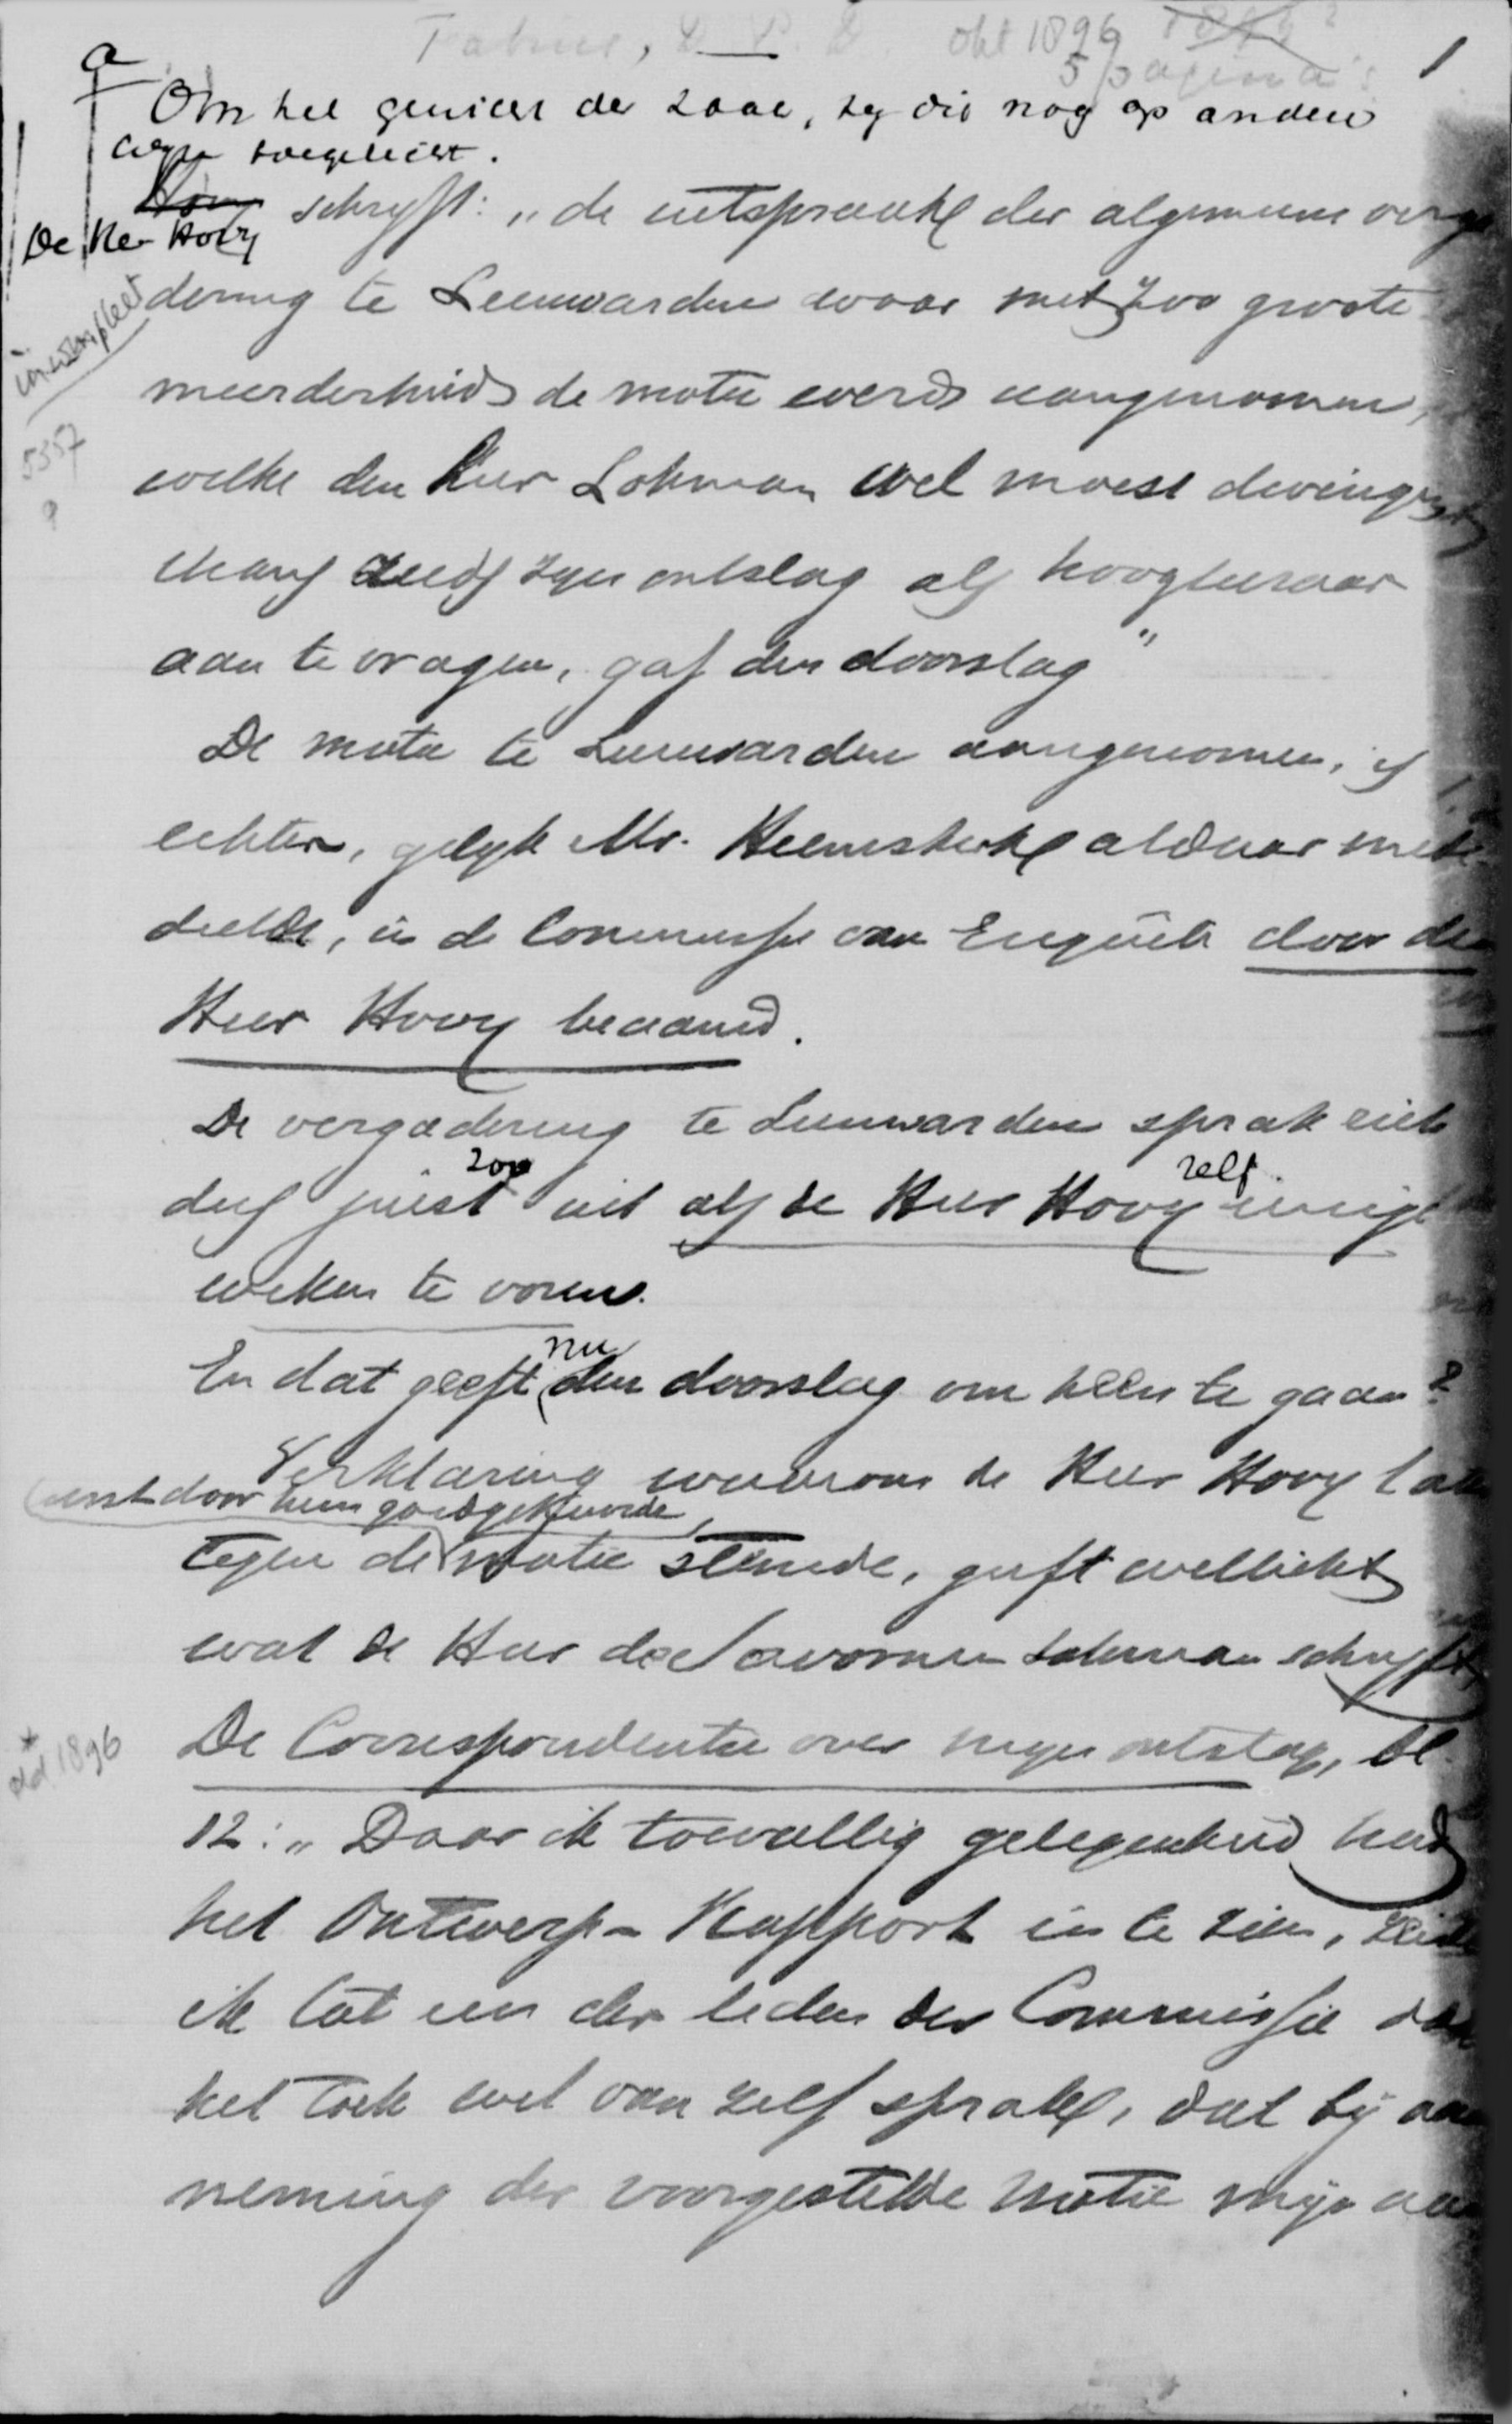 Fabius, D. P. D. okt 1896 1896?
5 pagina's
1
a
Om het gewicht der zaak, zij dit nog op andere
wyze toegelicht.
Hovy schryft: „de uitspraak der algemeene verga
De Heer Hovy
dering te Leeuwarden waar met zoo groote
incompleet
meerderheid de motie werd aangenomen,
5357
welke den Heer Lohman wel moest dwingen
?
zyn ontslag als hoogleeraar
aan te vragen, gaf den doorslag"
De motie te Leeuwarden aangenomen, is
echter, gelyk Mr. Heemskerk aldaar mede
deelde, in de Commissie van Enquête door den
Heer Hovy beaamd.
De vergadering te Leeuwarden sprak zich
dus juist zoo uit als de Heer Hovy zelf eenige
weken te voren.
En dat geeft nu den doorslag om heen te gaan?
Verklaring waarom de Heer Hovy later
(eerst door hem goedgekeurde
tegen de motie stemde, geeft wellicht
wat de Heer de Savornin Lohman schryft,
De Correspondentie over myn ontslag, bl.
dd. 1896
12: „Daar ik toevallig gelegenheid had
het Ontwerp-Rapport in te zien, zeide
ik tot een der leden der Commissie dat
het toch wel van zelf sprak, dat bij aan
neming der voorgestelde motie mijn aan